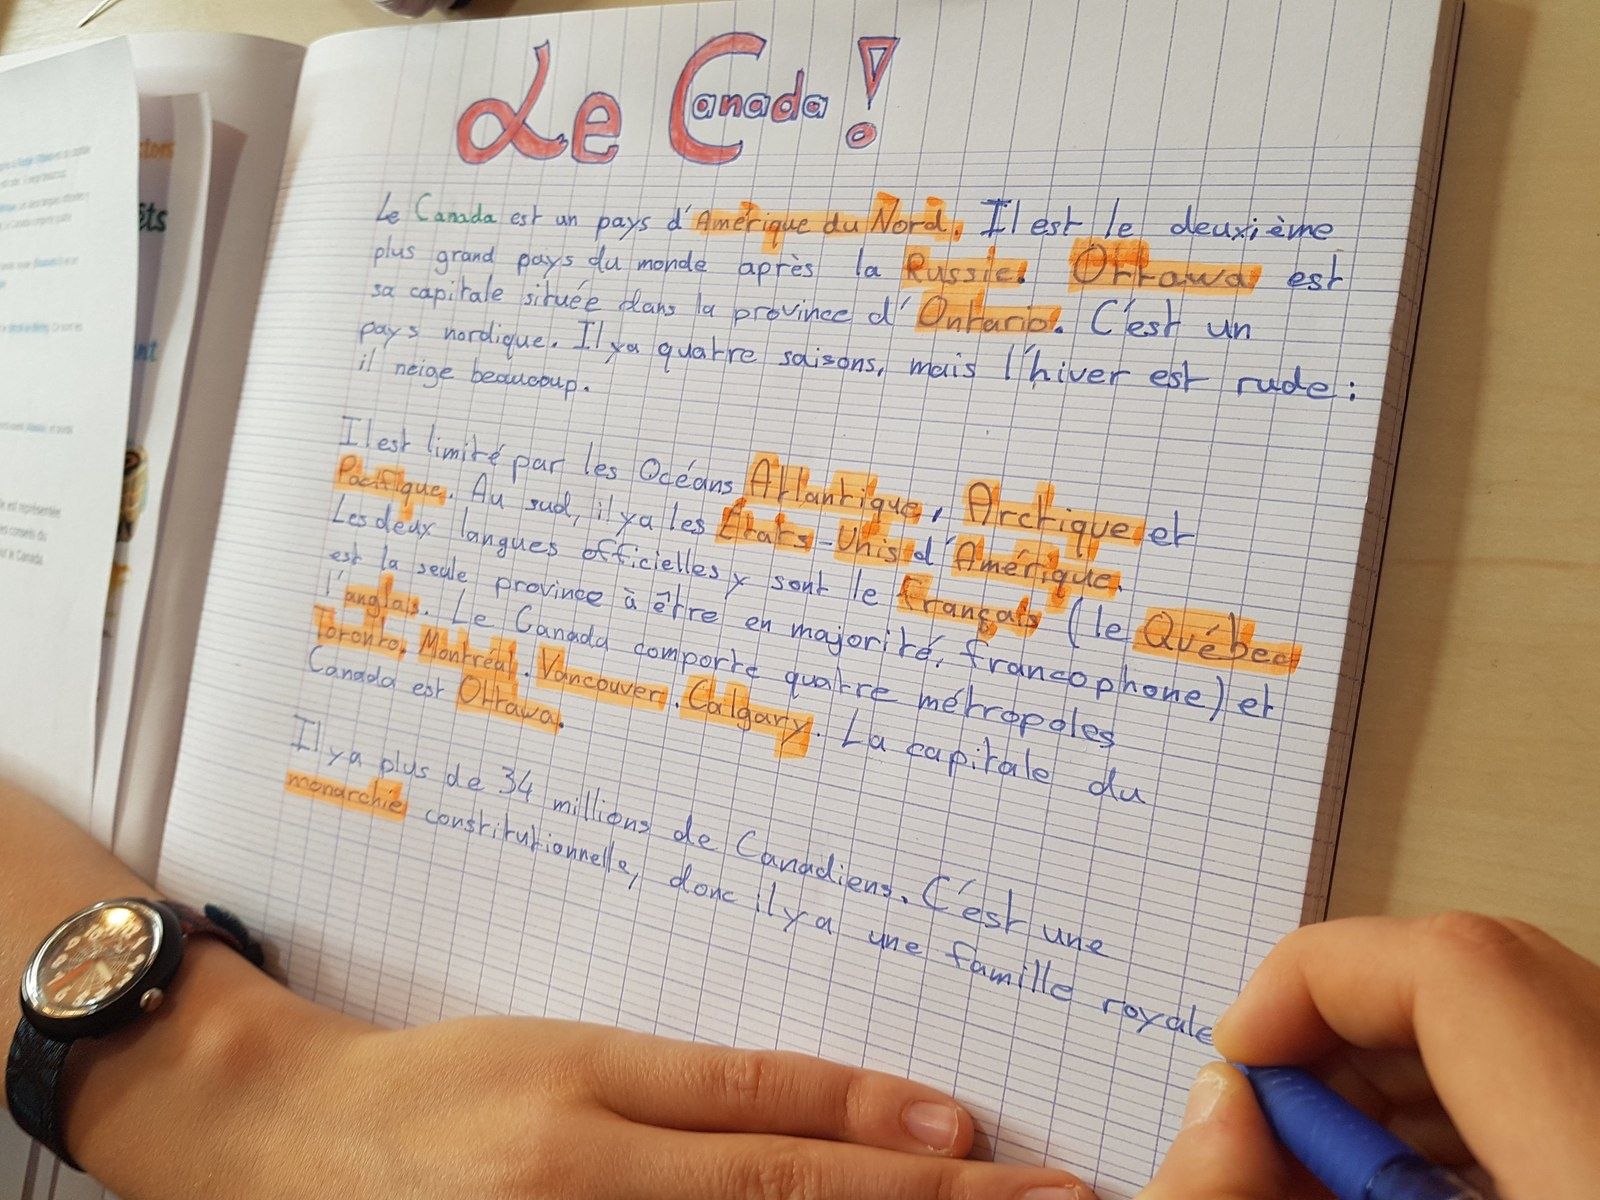 Le Canada !
Le Canada est un pays d'Amérique du Nord. Il est le deuxième
plus grand pays du monde après la Russie. Ottawa est
sa capitale située dans la province d'Ontario. C'est un
pays nordique. Il ya quatre saisons, mais l'hiver est rude :
il neige beaucoup.
Il est limité par les Océans Atlantique, Arctique et
Pacifique. Au sud, il ya les États-Unis d'Amérique.
Les deux langues officielles y sont le français (le Québec
est la seule province à être en majorité, francophone) et
l'anglais. Le Canada comporte quatre métropoles
Toronto. Montréal. Vancouver. Calgary. La capitale du
Canada est Ottawa.
Il ya plus de 34 millions de Canadiens. C'est une
monarchie constitutionnelle, donc il y a une famille royale